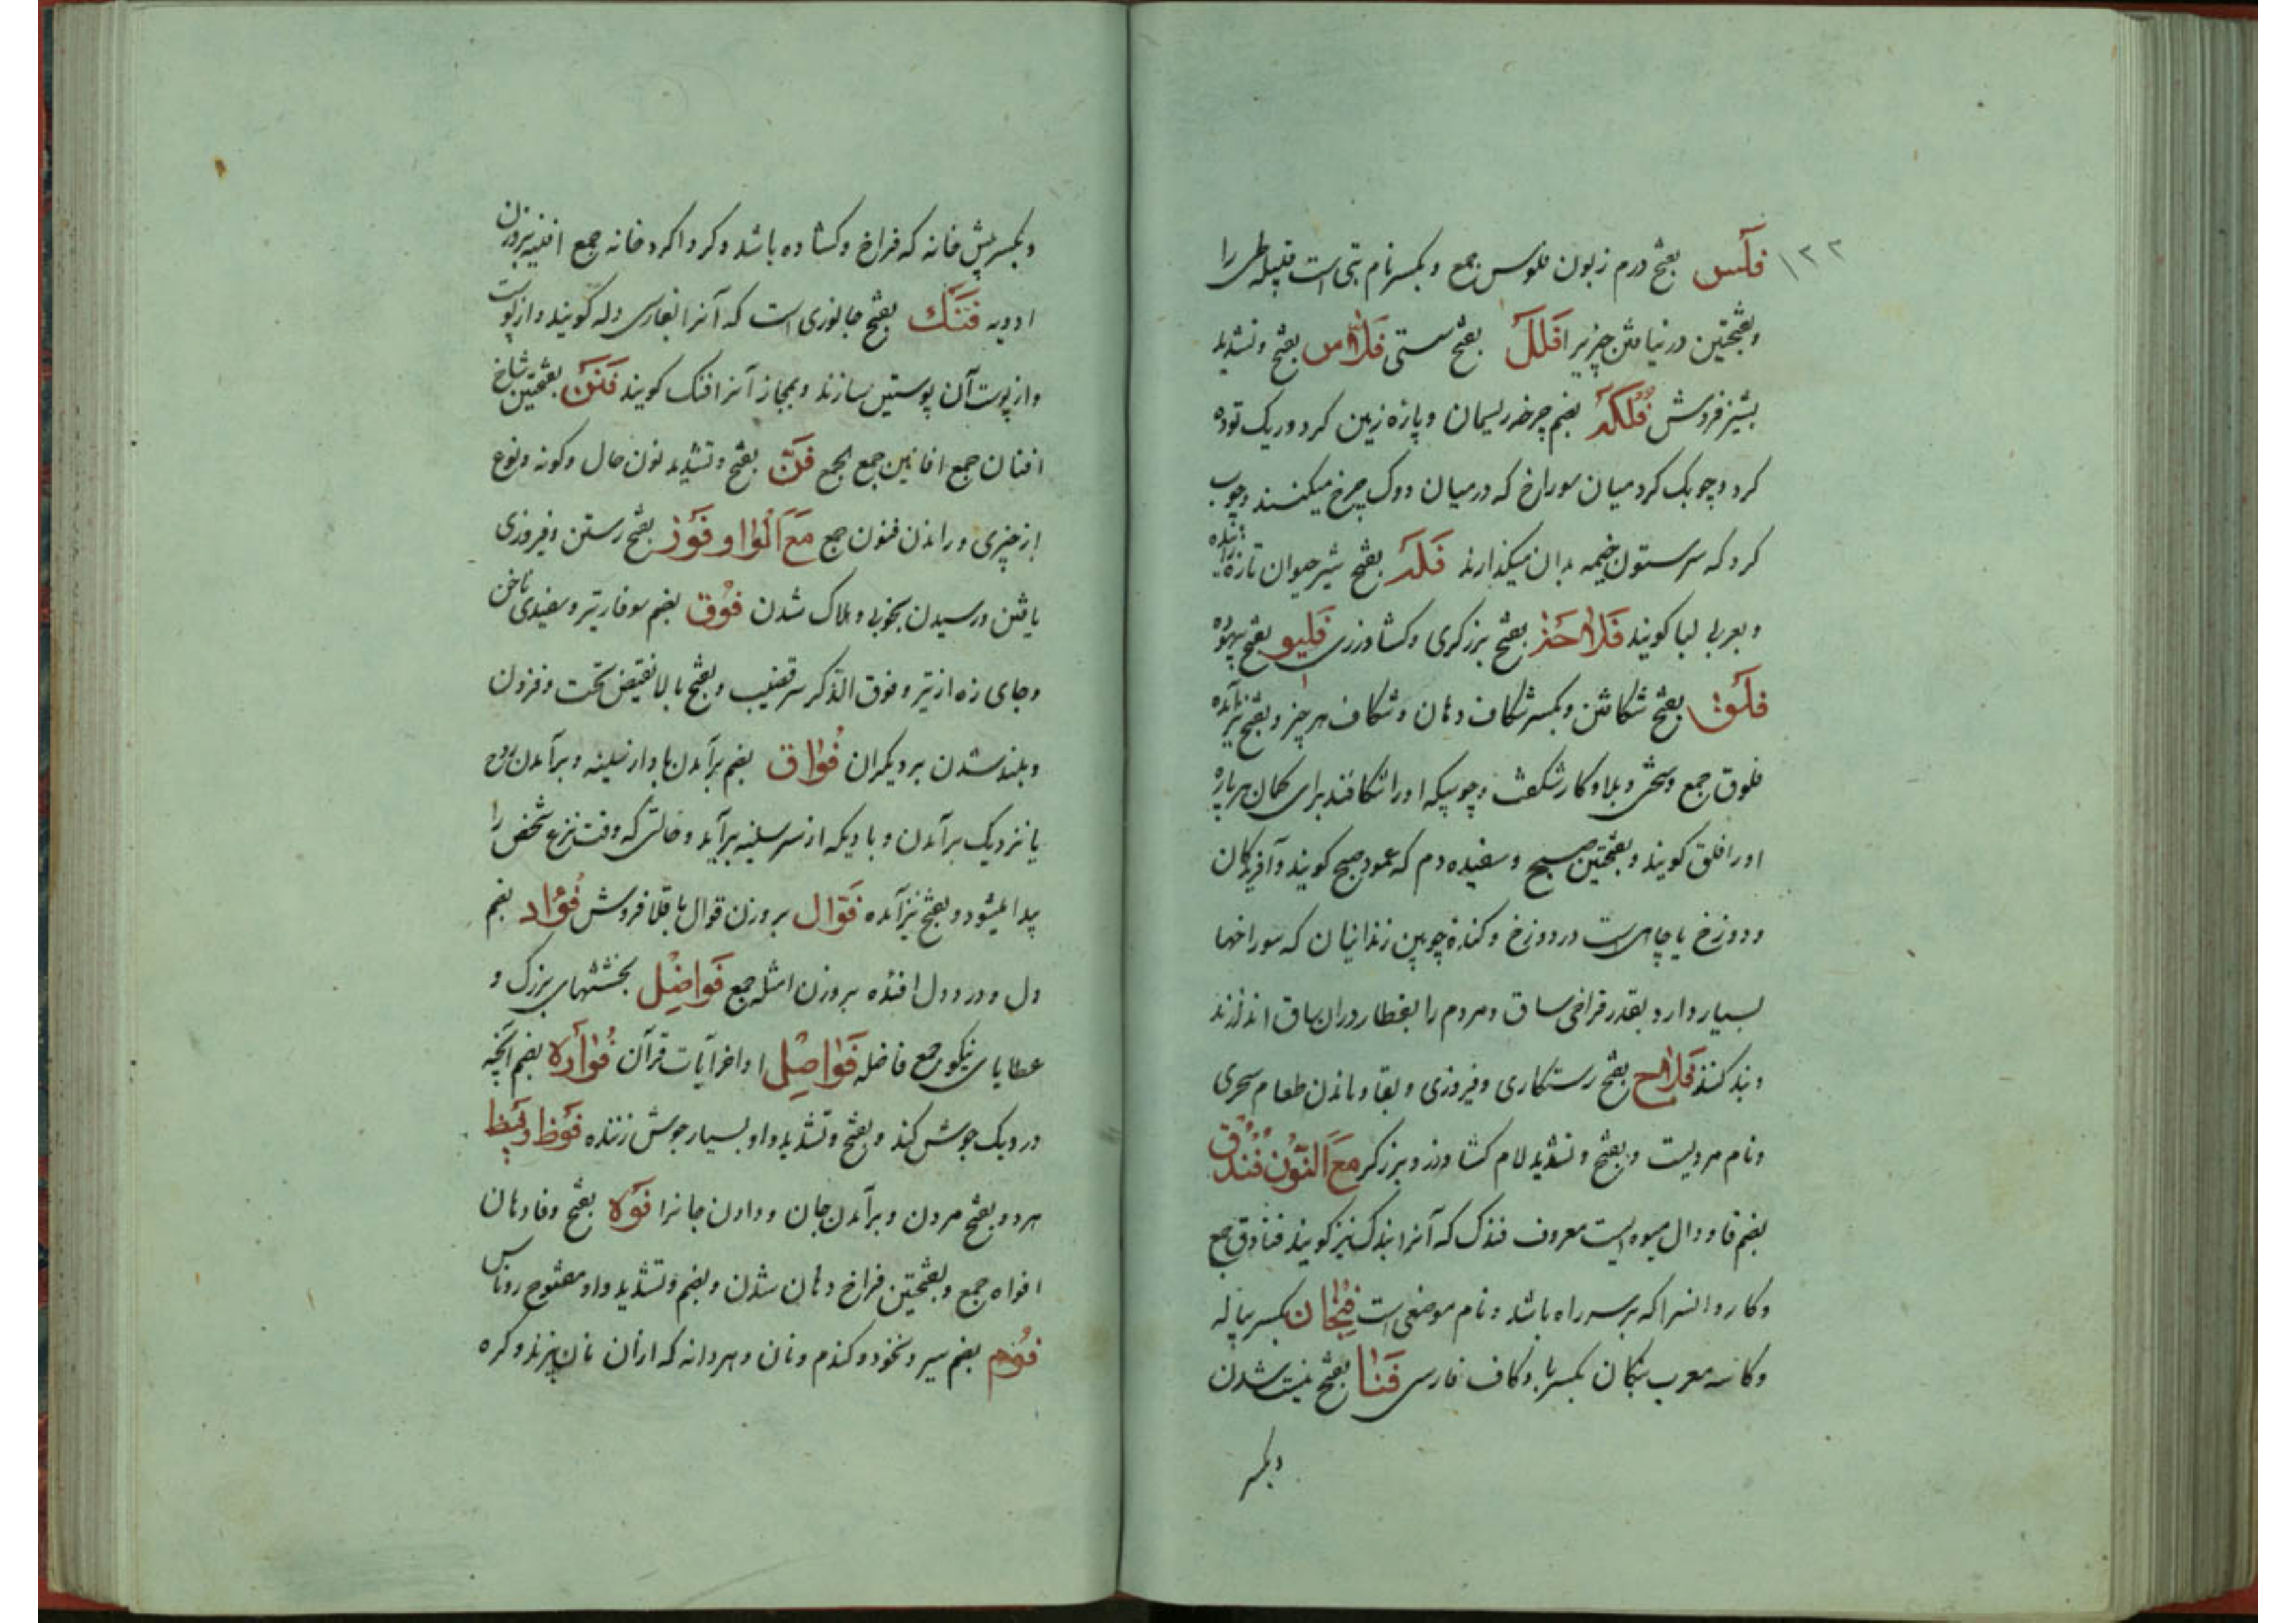 ۱۲۲
فلس بفتح درم زبون فلوس جمع و بکسر نام بتی است قبیله طی را
و بفتحتین در نیافتن چیزیرا فلل بفتح سستی فلاس بفتح و تشدید
پشیز فروش فلکه بضم چرخه ریسمان و پاره زمین کرد و ریک توده
کرد و چوبک کرد میان سوراخ که در میان دوک چرخ میکنند و چوب
کرد که سر ستون خیمه بدان میکذارند فله بفتح شیر حیوان تازه زائیده
و بعربی لبا کویند فلاحه بفتح برزکری و کشاورزی فلیو بفتح بیهوده
فلق بفتح شکافتن و بکسر شکاف دهان و شکاف هر چیز و بفتح نیز آمده
فلوق جمع و سختی و بلا و کار شکفت و چوبیکه اورا شکافند برای کمان هر پاره
اورا فلق کویند و بفتحتین صبح و سفیده دم که عمود صبح کویند و آفریدکان
و دوزخ یا چاهی است در دوزخ و کنده چوبین زندانیان که سوراخها
بسیار دارد بقدر فراخی ساق و مردم را بقطار دران ساق اندازند
و بند کنند فلاح بفتح رستکاری و فیروزی و بقا و ماندن طعام سحری
و نام مردیست و بفتح و تشدید لام کشاورز و برزکر مع النون فندق
بضم فا و دال میوه ایست معروف فندک که آنرا بندک نیز کویند فنادق جمع
و کاروانسرا که بر سر راه باشد و نام موضعی است فنجان بکسر پیاله
و کاسه معرب پنکان بکسر با و کاف فارسی فنا بفتح نیست شدن
وبکسر
و بکسر پیش خانه که فراخ و کشاده باشد و کردا کرد خانه جمع افنیه بروزن
ادویه فنک بفتح جانوری است که آنرا بفارسی دله کویند و از پوست
و از پوست آن پوستین سازند و بمجاز آنرا فنک کویند فنن بفتحتین شاخ
افنان جمع افانین جمع الجمع فن بفتح و تشدید نون حال و کونه و نوع
از چیزی و راندن فنون جمع مع الواو فوز بفتح رستن و فیروزی
یافتن و رسیدن بخوبی و هلاک شدن فوق بضم سوفار تیر و سفیدی ناخن
و جای زه از تیر و فوق الذکر سر قضیب و بفتح بالا نقیض تحت و فزون
و بلند شدن بر دیکران فواق بضم برآمدن باد از سینه و برآمدن روح
یا نزدیک برآمدن و بادیکه از سر سینه برآید و حالتی که وقت نزع شخص را
پیدا میشود و بفتح نیز آمده فوال بروزن قوال باقلا فروش فؤاد بضم
دل و درد دل افئده بروزن امثله جمع فواضل بخششهای بزرک و
عطایای نیکو جمع فاضله فواصل اواخر آیات قرآن فواره بضم آنچه
در دیک جوش کند و بفتح و تشدید واو بسیار جوش زننده فوظ و فیظ
هر دو بفتح مردن و برآمدن جان و دادن جانرا فوه بفتح و فا دهان
افواه جمع و بفتحتین فراخ دهان شدن و بضم و تشدید واو مفتوح روناس
فوم بضم سیر و نخود و کندم و نان و هر دانه که ازان نان پزند و کره